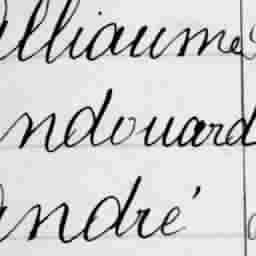 illiaume
ndouard
André